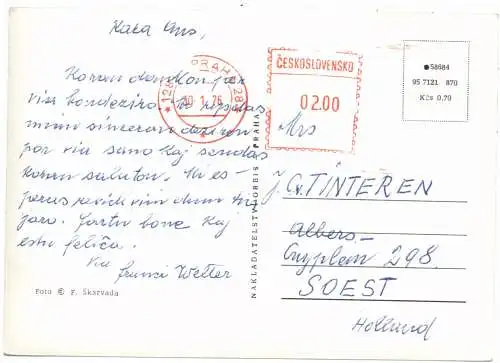 Kara Ans,
Koran dankon per
via bondeziro. Mi
mian sinceran deziron
por via sano kaj sendas
koran saluton. Mi es-
peras revidi vin dum tiu
jaro. Fartu bone kaj
estu feliĉa.
Via
Franzi Welter
Foto © F. Škarvada
NAKLADATELSTVÍ ORBIS PRAHA
PRAHA 28
ČESKOSLOVENSKO
02.00
58684
95 7121 870
Kčs 0,70
Mrs
J. C. v. TINTEREN
Albers-
Cuyplein 298.
SOEST
Holland